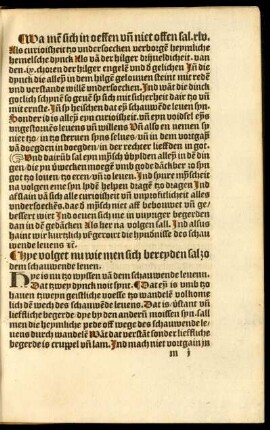 Wa mē sich in oeffen vn̄ niet offen sal. rlv.
Als curioisheit tzo vndersoecken verborgē heymliche
hemelsche dynck Als vā der hilger drheuldicheit. van
den .ir. choren der hilger engelē vnd d' gelichen Jn̄ die
dynck die alleyn in dem hilgē gelouuen steint mit redē
vnd verstande willē vndersoecken. Jnd wat die dinck
gotlich schynē so geuē sy sich mit sicherheit dair tzo vn̄
mit ernste. Jn̄ sy heischen dat eyn schauwēde leuen syn.
Sonder id is alleyn eyn curioisheit. vn̄ eyn voidsel eyns
vngestoruēs leuens vn̄ willens Vn̄ also en nemen sy
niet tzo. in tzo steruen syns selues. vn̄ in dem voirtgāg
vā doegden in doegden. in der rechter lieffden in got.
Vnd dairūb sal eyn mysch oyuhlden alleyn in de din
gen. die yn verwecken moegē vmb gode dāckber tzo syn
got tzo louen. tzo eren. vn̄ tzo leuen. Jnd synre mynscheit
na volgen eme syn lydē helpen dragē tzo dragen Jnd
aff slain vā sich alle curioisheit vn̄ vnprofitlicheit alles
vndersoeckēs. dae d' mynsch niet aff beboumet vn̄ ge-
bessert wirt Jnd oeuen sich me in vuyriger begerden
dan in dē gedācken Als her na volgen sall Jnd alsus
hait wir kurtzlich vsgeroirt die hyndnisse des schau
wende leuens ⁊c.
Hye volget nu wie men sich bereyden sal tzo
dem schauwende leuen.
Hye is nu tzo wyssen vā dem schauwende leuenn.
Dat tzwey dynck noit synt. Dat ey is vmb tzo
hauen tzweyn geistliche voesse tzo wandelē volkome
lich dē wech des schauwēde leuens. Dat is. vstant vn̄
lieffliche begerde. dye by den anderē moissen syn. sall
men die heymliche pede off wege des schauwende le-
uens durch wandelē Wāt dat verstāt sonder lieffliche
begerde is cruppel vn̄ lam. Jnd mach niet voirtgain in
m j